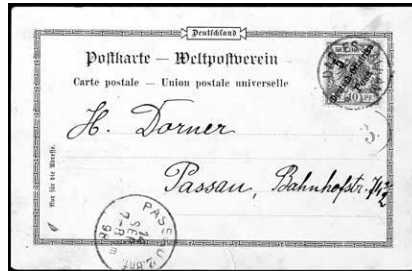 Deutschland
Postkarte — Weltpostverein
Carte postale — Union postale universelle
10 Pf
3.
H. Dorner
Passau, Bahnhofstr.
Nur für die Adresse.
PASSAU 2. Bhf
SEP
7-8
98